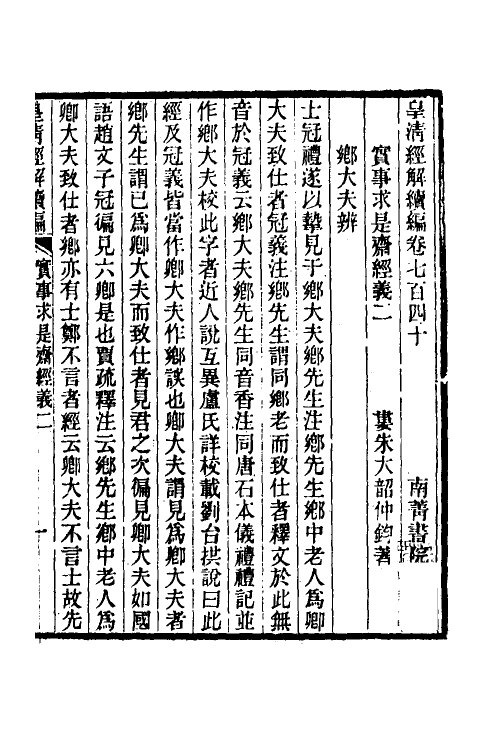 皇清經解續編卷七百四十　南菁書院
實事求是齋經義二　婁朱大韶仲鈞著
鄉大夫辨
士冠禮遂以摯見于鄉大夫鄉先生注鄉先生鄉中老人爲卿
大夫致仕者冠義注鄉先生謂同鄉老而致仕者釋文於此無
音於冠義云鄉大夫鄉先生同音香注同唐石本儀禮禮記並
作鄉大夫校此字者近人說互異盧氏詳校載劉台拱說曰此
經及冠義皆當作卿大夫作鄉誤也卿大夫謂見爲卿大夫者
鄉先生謂已爲卿大夫而致仕者見君之次徧見卿大夫如國
語趙文子冠徧見六卿是也賈疏釋注云鄉先生鄉中老人爲
卿大夫致仕者鄉亦有士鄭不言者經云卿大夫不言士故先
皇清經解續編　實事求是齋經義二　一